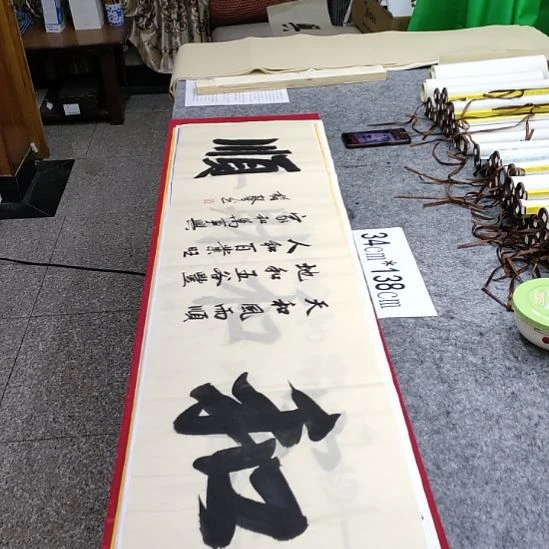 和
天和風雨順
地和五谷豐
人和百業旺
家和萬事興
順
34cm*138cm